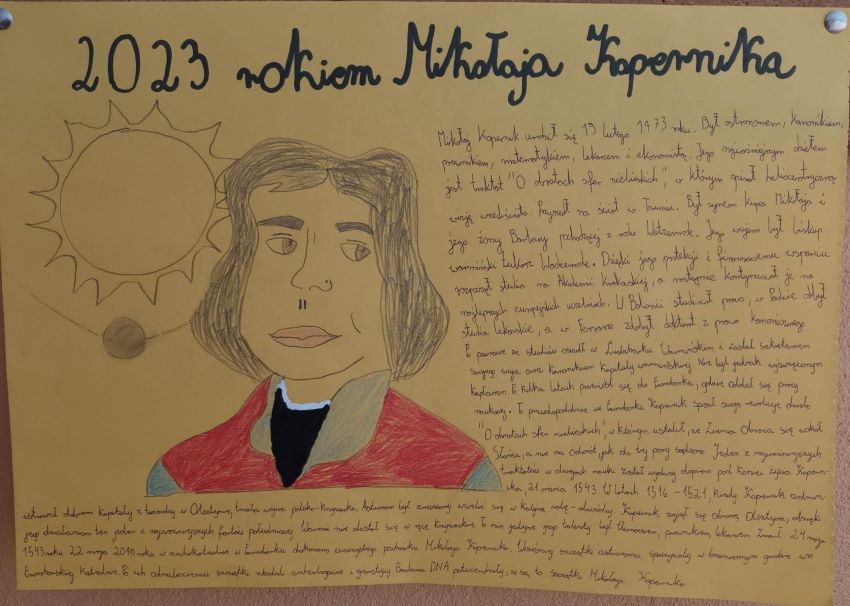 2023 rokiem Mikołaja Kopernika
Mikołaj Kopernik urodził się 19 lutego 1473 roku. Był astronomem, kanonikiem,
prawnikiem, matematykiem, lekarzem i ekonomistą. Jego najważniejszym dziełem
jest traktat "O obrotach sfer niebieskich", w którym opisał heliocentryczną
wizję wszechświata. Przyszedł na świat w Toruniu. Był synem kupca Mikołaja i
jego żony Barbary pochodzącej z rodu Watzenrode. Jego wujem był biskup
warmiński Łukasz Watzenrode. Dzięki jego protekcji i finansowemu wsparciu
rozpoczął studia na Akademii Krakowskiej, a następnie kontynuował je na
najlepszych europejskich uczelniach. W Bolonii studiował prawo, w Padwie odbył
studia lekarskie, a w Ferrarze zdobył doktorat z prawa kanonicznego
Po powrocie ze studiów osiadł w Lidzbarku Warmińskim i został sekretarzem
swojego wuja oraz kanonikiem kapituły warmińskiej. Nie był jednak wyświęconym
kapłanem. Po kilku latach przeniósł się do Fromborka, gdzie oddał się pracy
naukowej. To prawdopodobnie we Fromborku Kopernik spisał swoje dzieło
"O obrotach sfer niebieskich", w którym ustalił, że Ziemia obraca się wokół
Słońca, a nie na odwrót, jak do tej pory sądzono. Jeden z najważniejszych
traktatów w dziejach nauki został wydany dopiero pod koniec życia Koper-
nika, 21 marca 1543. W latach 1516-1521, kiedy Kopernik admin-
istrował dobrami kapituły z twierdzy w Olsztynie, trwała wojna polsko-krzyżacka. Astronom był zmuszony wcielić się w kolejną rolę - dowódcy. Kopernik zajął się obroną Olsztyna, dzięki
jego działaniom ten jeden z najważniejszych fortów południowej Warmii nie dostał się w ręce krzyżackie. To nie jedyne jego talenty był tłumaczem, prawnikiem, lekarzem. Zmarł 24 maja
1543 roku. 22 maja 2010 roku w archikatedrze w Fromborku dokonano pochówku Mikołaja Kopernika. Wcześniej szczątki astronoma spoczywały w bezimiennym grobie we
fromborskiej katedrze. Po ich odnalezieniu szczątki zbadali antropolodzy i genetycy. Badania DNA potwierdziły, że są to szczątki Mikołaja Kopernika